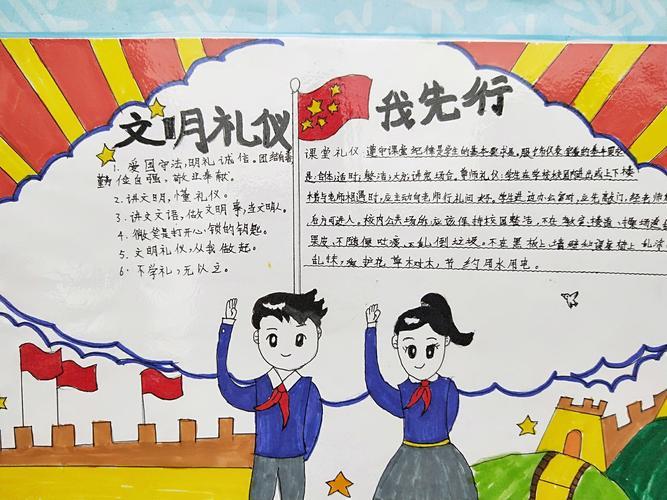 文明礼仪 我先行
1. 爱国守法,明礼诚信。团结友善
勤俭自强、敬业奉献。
2. 讲文明,懂礼仪。
3. 讲文文语,做文明事,当文明人。
4. 微笑是打开心锁的钥匙。
5. 文明礼仪,从我做起。
6. 不学礼,无以立。
课堂礼仪:遵守课堂纪律是学生的基本要求是。服饰仪表穿着的基本要求
是:合体;适时;整洁;大方;讲究场合。尊师礼仪:学生在学校校园内进出或上下楼
梯与老师相遇时,应主动向老师行礼问好。学生进老师办公室时,应先敲门,经老师
后方可进入。校内公共场所,应该保持校园整洁,不在教室、楼道、操场乱
果皮、不随便吐痰、不乱倒垃圾。不在黑板上、墙壁和课桌椅上乱涂
乱抹,爱护花草树木,节约用水用电。